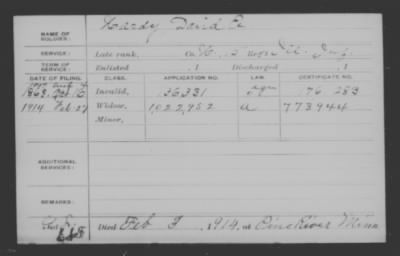 NAME OF SOLDIER: Hardy David
SERVICE: Late rank, Co. H, Reg't Ill. Inf.
TERM OF SERVICE: Enlisted , 1 Discharged , 1
DATE OF FILING. CLASS. APPLICATION NO. LAW. CERTIFICATE NO.
Invalid, 136331 76 283
1914 Feb-27 Widow, 1022,952 773944
Minor,
ADDITIONAL SERVICES:
REMARKS:
Died Feb 1914, at Pine River Minn